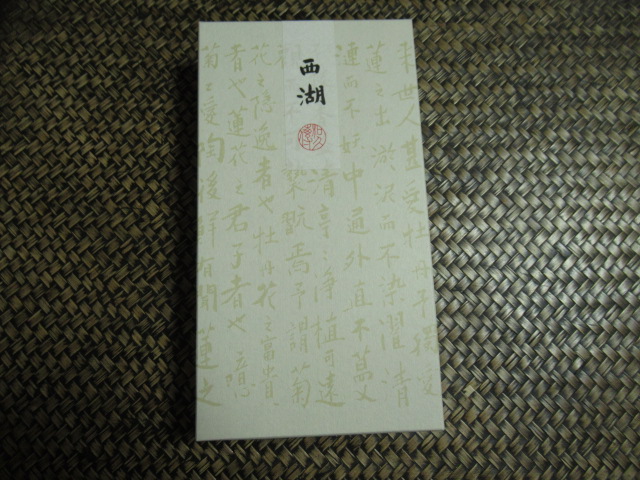 西湖
来世人甚愛牡丹予獨愛
蓮之出淤泥而不染濯清
漣而不妖中通外直不蔓
清亭〻淨植可遠
褻翫焉予謂菊
花之隱逸者也牡丹花之富貴
者也蓮花之君子者也噫
菊之愛陶後鮮有聞蓮之